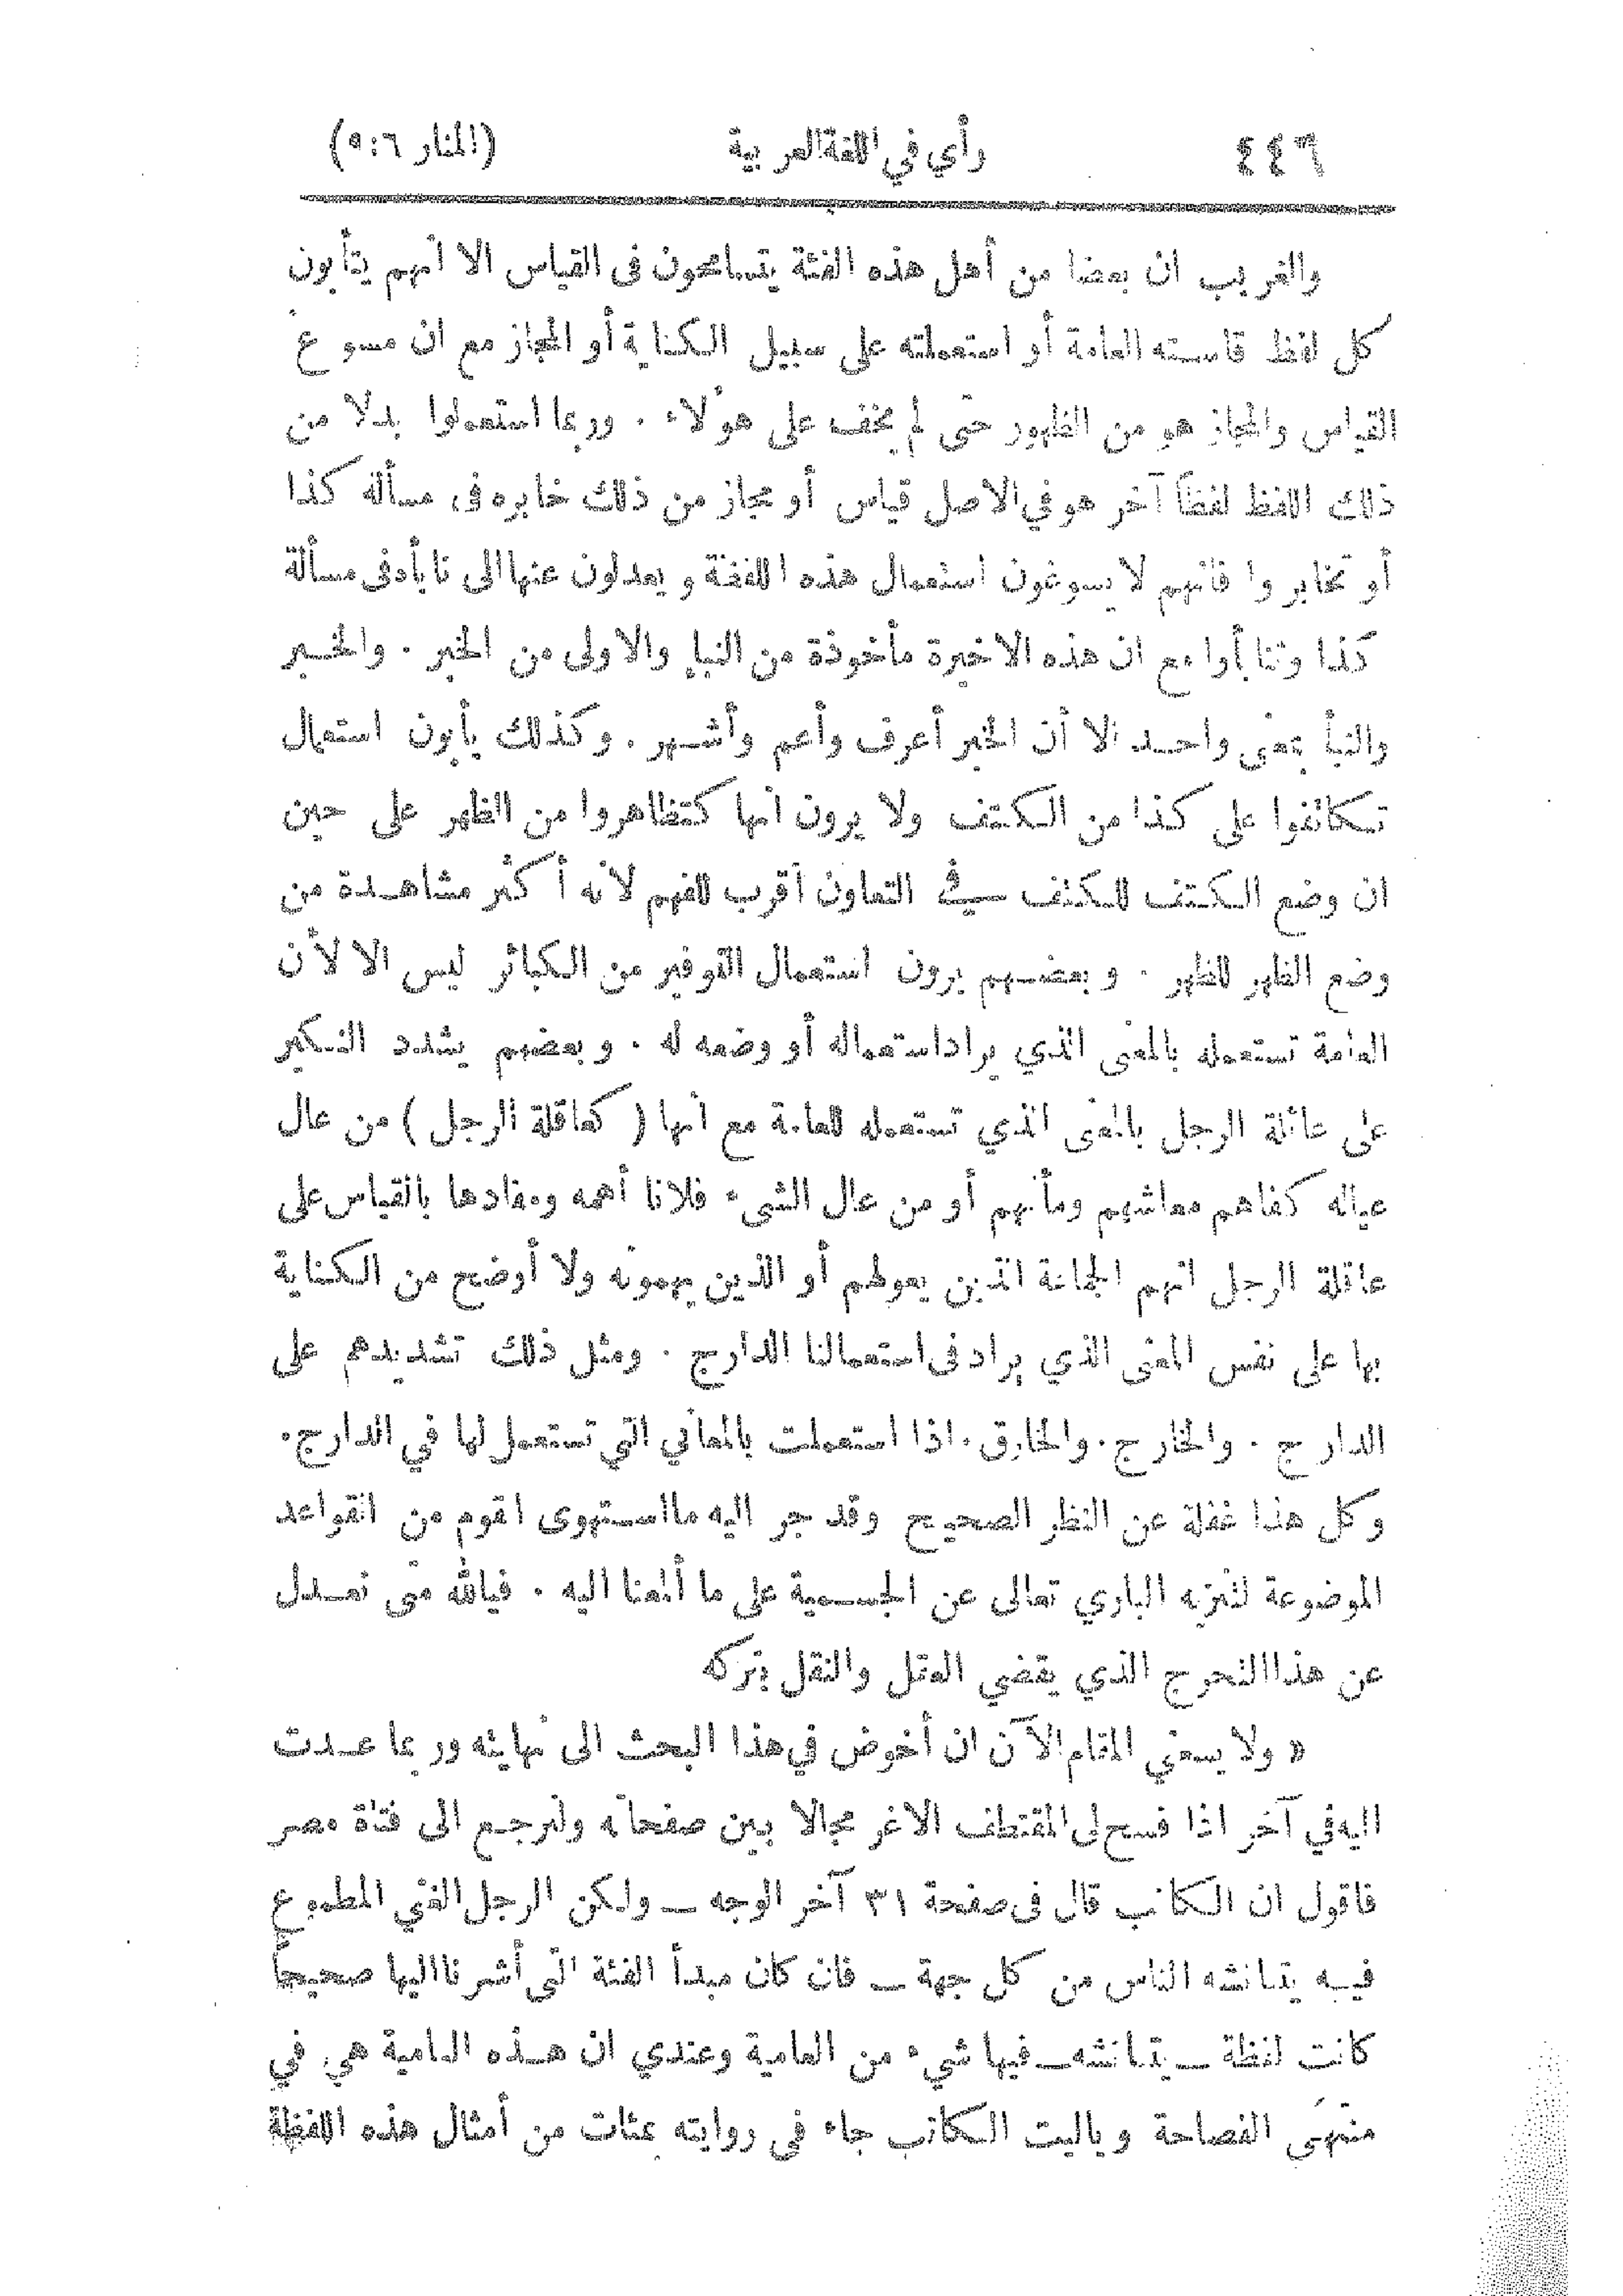 ٤٤٦ رأي في اللغة العربية (المنار ٦:٩)
والغريب ان بعضا من أهل هذه الفئة يتسامحون فى القياس الا انهم يتأبون
كل لفظ قاسته العامة أو استعملته على سبيل الكناية أو المجاز مع ان مسوغ
القياس والمجاز هو من الظهور حتى لم يخف على هؤلاء . وربما استعملوا بدلا من
ذلك اللفظ لفظاً آخر هو في الاصل قياس أو مجاز من ذلك خابره فى مسألة كذا
أو تخابروا فانهم لا يسوغون استعمال هذه اللفظة ويعدلون عنها الى نابأه فى مسألة
كذا وتنابأوا مع ان هذه الاخيرة مأخوذة من النبإ والاولى من الخبر . والخبر
والنبأ بمعنى واحد الا أن الخبر أعرف وأعم وأشهر . وكذلك يأبون استعمال
تكاتفوا على كذا من الكتف ولا يرون انها كتظاهروا من الظهر على حين
ان وضع الكتف للكتف في التعاون أقرب للفهم لانه أكثر مشاهدة من
وضع الظهر للظهر . وبعضهم يرون استعمال التوفير من الكبائر ليس الا لأن
العامة تستعمله بالمعنى الذي يراد استعماله أو وضعه له . وبعضهم يشدد النكير
على عائلة الرجل بالمعنى الذي تستعمله العامة مع انها ( كعاقلة الرجل ) من عال
عياله كفاهم معاشهم ومأنهم أو من عال الشيء فلانا أهمه ومفادها بالقياس على
عاقلة الرجل انهم الجماعة الذين يعولهم أو الذين يهمونه ولا أوضح من الكناية
بها على نفس المعنى الذي يراد فى استعمالنا الدارج . ومثل ذلك تشديدهم على
الدارج . والخارج . والخارق . اذا استعملت بالمعاني التي تستعمل لها في الدارج .
وكل هذا غفلة عن النظر الصحيح وقد جر اليه ما استهوى القوم من القواعد
الموضوعة لتنزيه الباري تعالى عن الجسمية على ما ألمعنا اليه . فيالله متى نعدل
عن هذا التحرج الذي يقضي العقل والنقل بتركه
« ولا يسعني المقام الآن ان أخوض في هذا البحث الى نهايته وربما عدت
اليه في آخر اذا فسح لى المقتطف الاغر مجالا بين صفحاته ولنرجع الى فتاة مصر
فاقول ان الكاتب قال فى صفحة ٣١ آخر الوجه — ولكن الرجل الغني المطموع
فيه يتناتشه الناس من كل جهة — فان كان مبدأ الفئة التى أشرنا اليها صحيحاً
كانت لفظة — يتناتشه — فيها شيء من العامية وعندي ان هذه العامية هي في
منتهى الفصاحة وياليت الكاتب جاء في روايته بمئات من أمثال هذه اللفظة